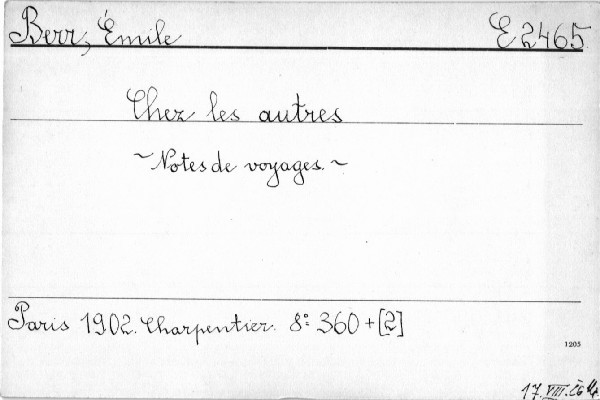 Berr, Émile E 2465
Chez les autres
~ Notes de voyages. ~
Paris 1902. Charpentier. 8° 360 + [2]
1205
17. VIII.